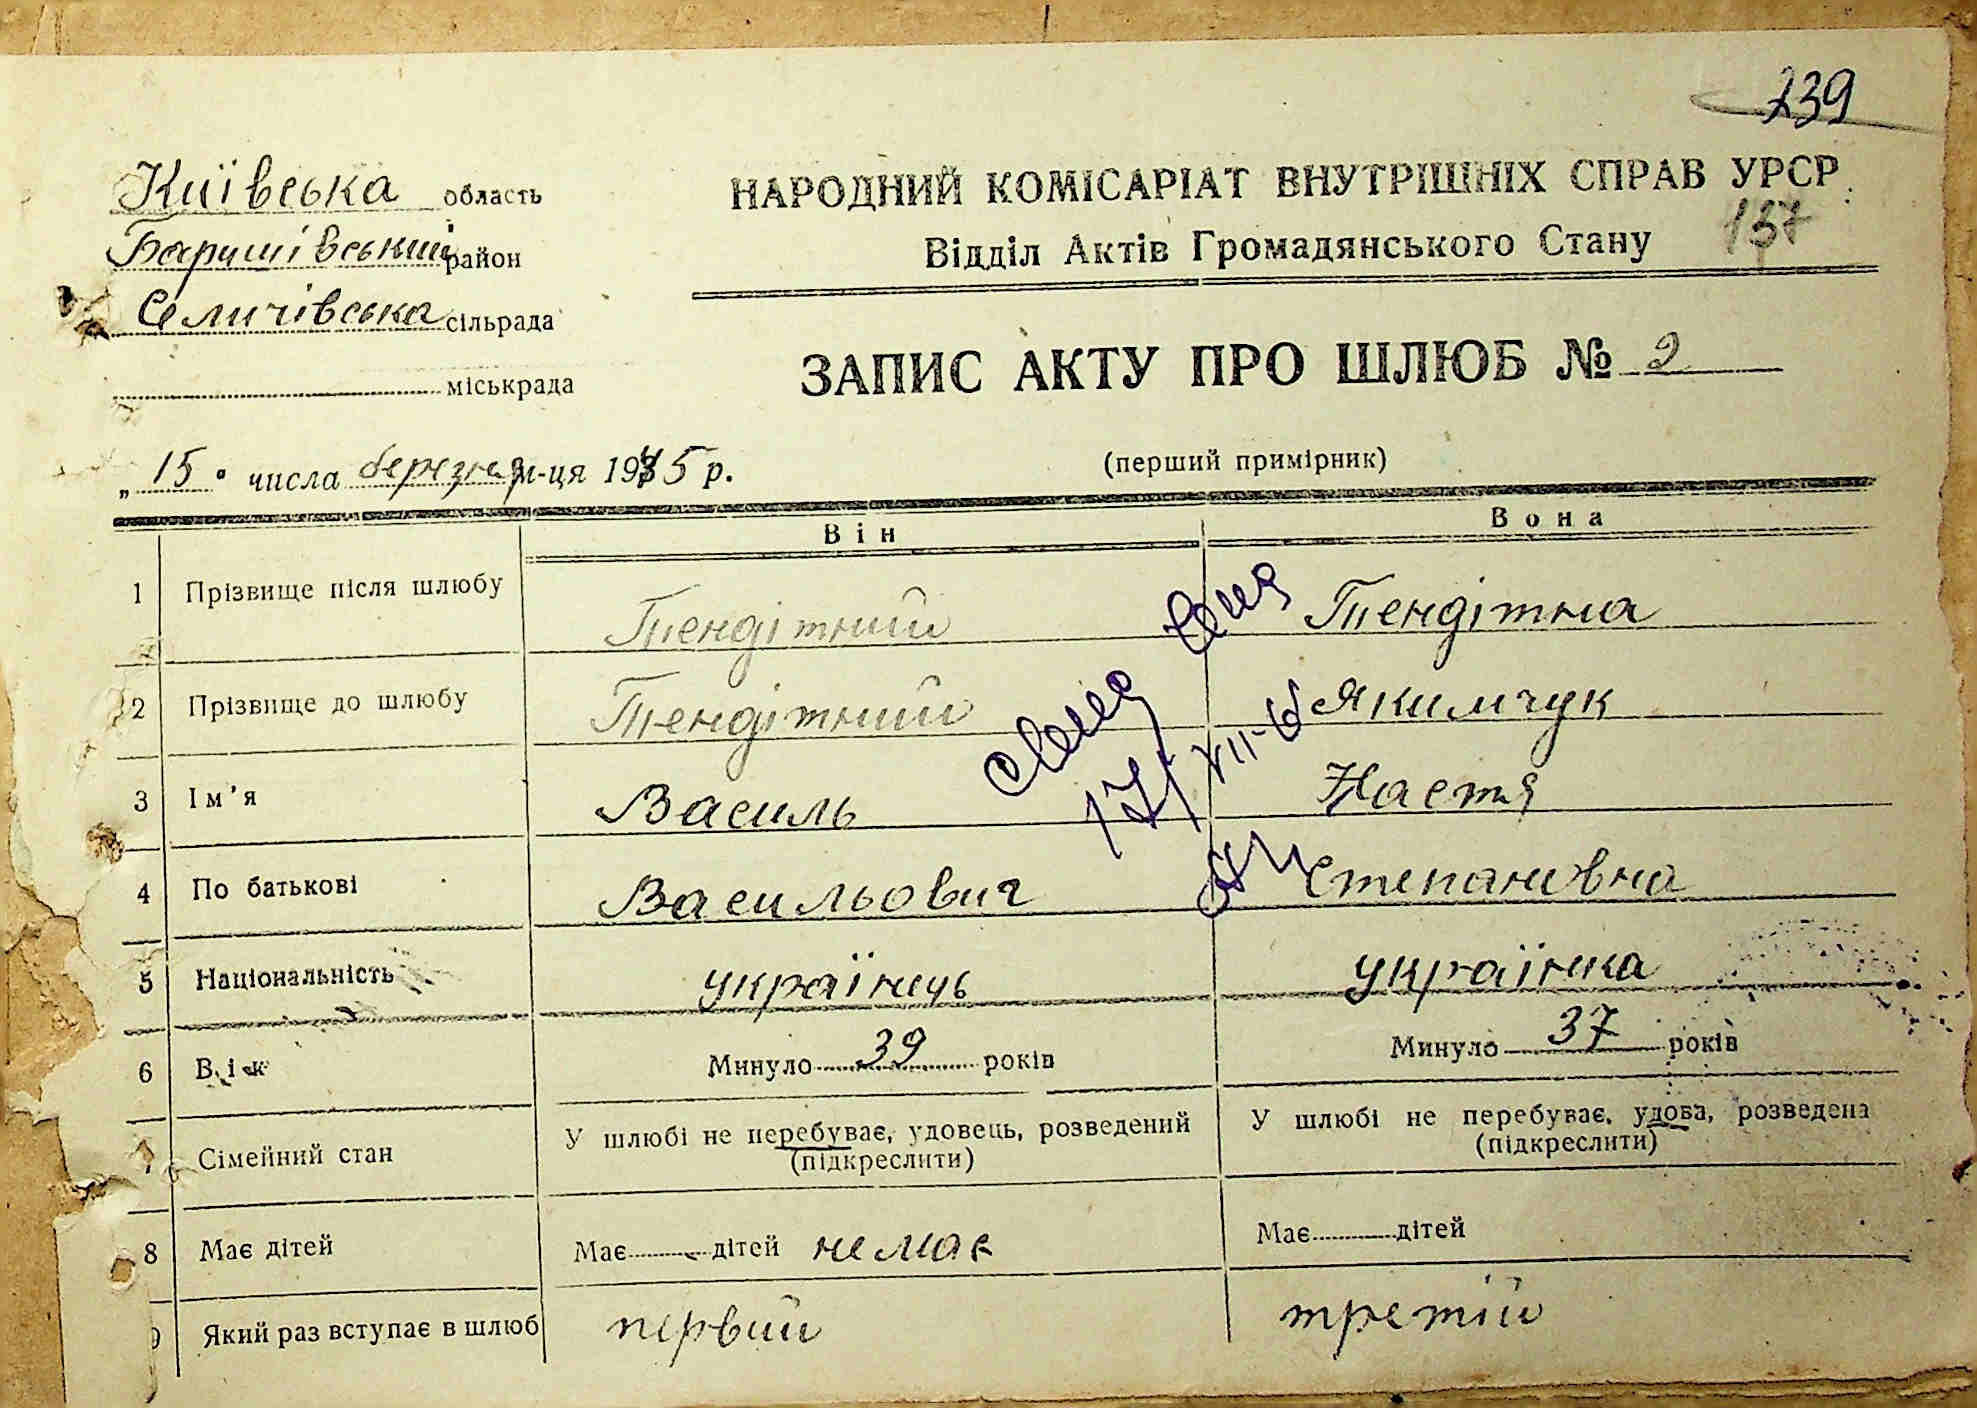 239
Київська область
Баришівський район
Селичівська сільрада
міськрада
НАРОДНИЙ КОМІСАРІАТ ВНУТРІШНІХ СПРАВ УРСР
137
Відділ Актів Громадянського Стану
ЗАПИС АКТУ ПРО ШЛЮБ № 2
(перший примірник)
„15" числа березня м-ця 1945 р.
Він Вона
1 Прізвище після шлюбу Тендітний Тендітна
2 Прізвище до шлюбу Тендітний Якимчук
3 Ім'я Василь Настя
4 По батькові Васильович Степановна
5 Національність українець українка
6 Вік Минуло 39 років Минуло 37 років
7 Сімейний стан У шлюбі не перебуває, удовець, розведений У шлюбі не перебуває, удова, розведена
(підкреслити) (підкреслити)
8 Має дітей Має дітей не має Має дітей
9 Який раз вступає в шлюб первий третій